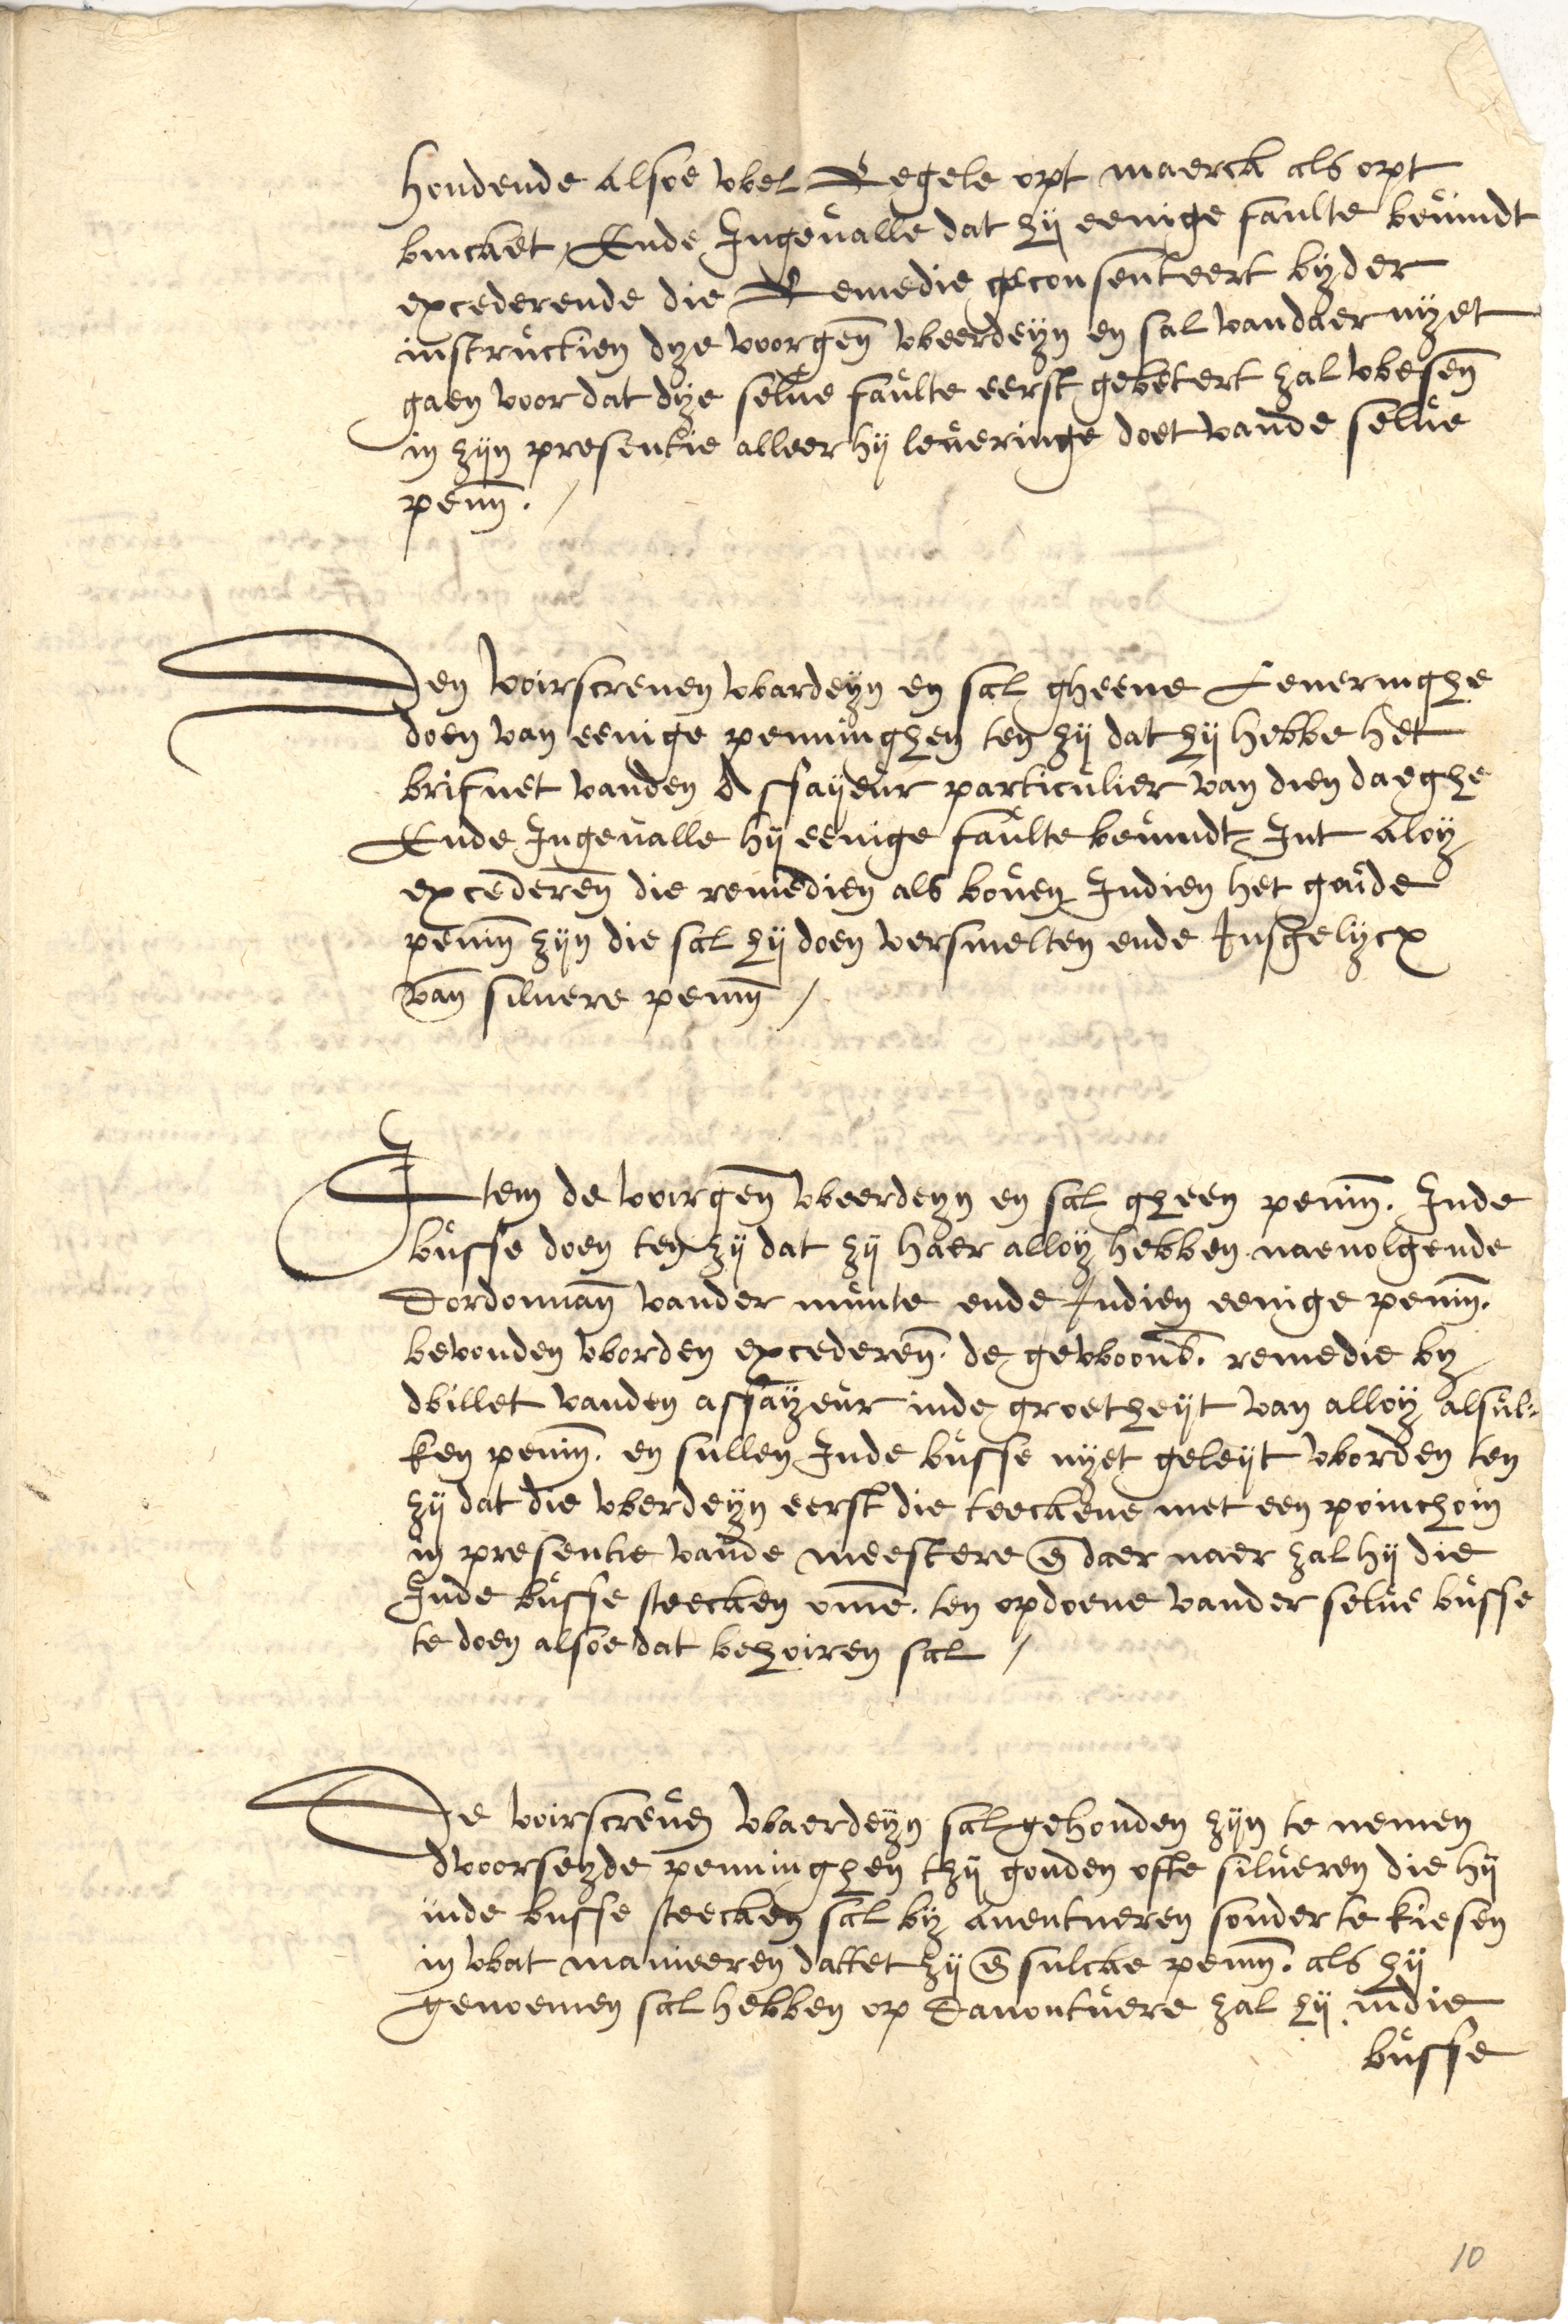 houdende alsoe wel Regele opt maerck als opt
bincket, Ende Ingevalle dat hij eenige faulte bevindt
excederende die Remedie geconsenteert byder
instructien dye voorgen̄ weerdeyn en sal vandaer nyet
gaen voor dat dye selve faulte eerst gebetert zal wesen̄
in zijn presentie alleer hij leveringe doet vande selve
penn̄. /
Den voirscreven wardeyn en sal gheene Leveringhe
doen van eenige penninghen ten zij dat hij hebbe het
brifuet vanden Assayeur particulier van dien daeghe
Ende Ingevalle hij eenige faulte bevindt Int aloy
excederen̄ die remedien als boven Indien het goude
pennn̄ zijn die sal hij doen versmelten ende Insgelycx
van̄ silvere penn̄ /
Item de voirgen̄ weerdeyn en sal gheen penn̄. Inde
busse doen ten zij dat zij haer alloy hebben naevolgende
Dordonnan̄ vander munte ende Indien eenige penn̄.
bevonden worden excederen̄. de gewoonl. remedie by
dbillet vanden assayeur inde groetheyt van alloy alsul-
ken penn̄. en sullen Inde busse nyet geleyt worden ten
zij dat die werdeyn eerst die teeckene met een poinchoin
in presentie vande meestere en̄ daer naer zal hij die
Inde busse steecken omme. ten opdoene vander selve busse
te doen alsoe dat behoiren sal /
De voirscreven waerdeyn sal gehouden zijn te nemen
dvoorseyde penninghen tzij gouden ofte silveren die hij
inde busse steecken sal by aventueren sonder te kiesen
in wat manieeren dattet zij en̄ sulcke penn̄. als hij
genoemen sal hebben op Davontuere zal hij indie
busse
10